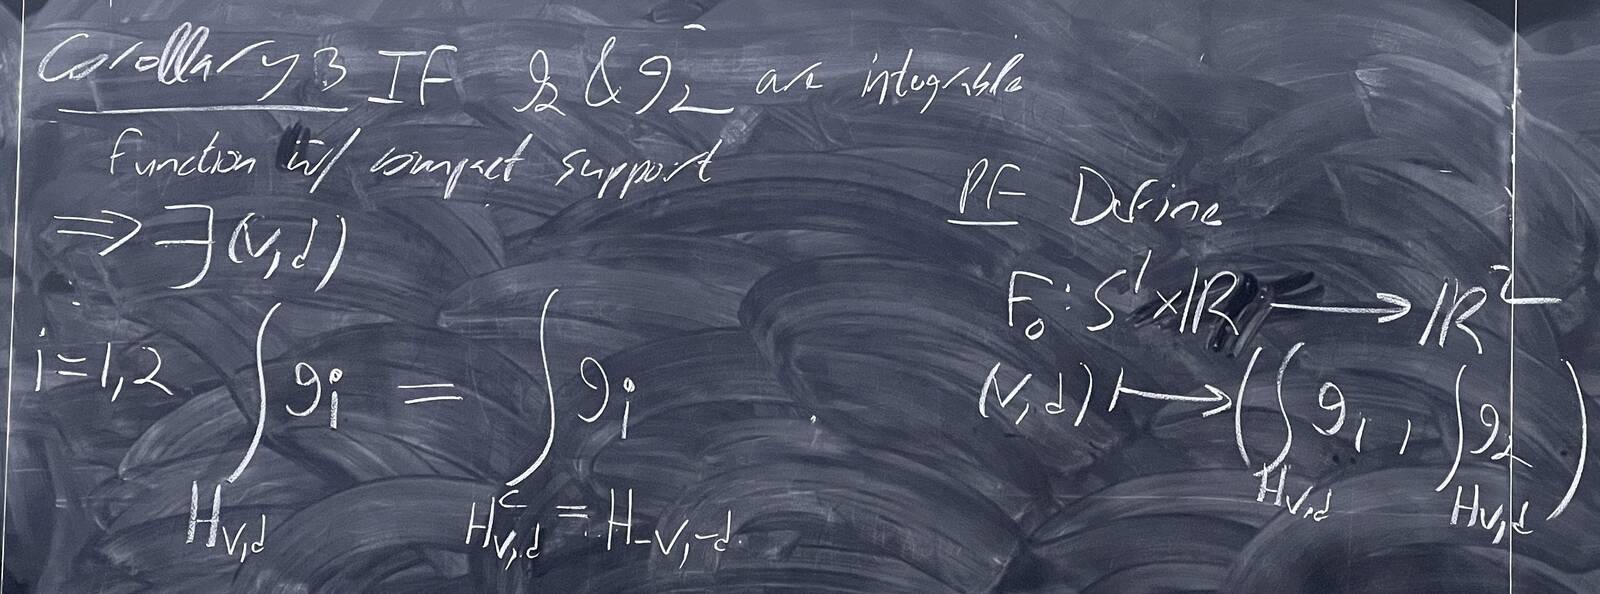 Corollary 3 IF g₂ & g₂ are integrable
function w/ compact support
⟹ ∃ (v,d)
i=1,2 ∫ gᵢ = ∫ gᵢ
H_{v,d} H^c_{v,d} = H_{-v,-d}
PF Define
F₀ : S¹ × ℝ ⟶ ℝ²
(v,d) ⟼ (∫ g₁ , ∫ g₂)
H_{v,d} H_{v,d}